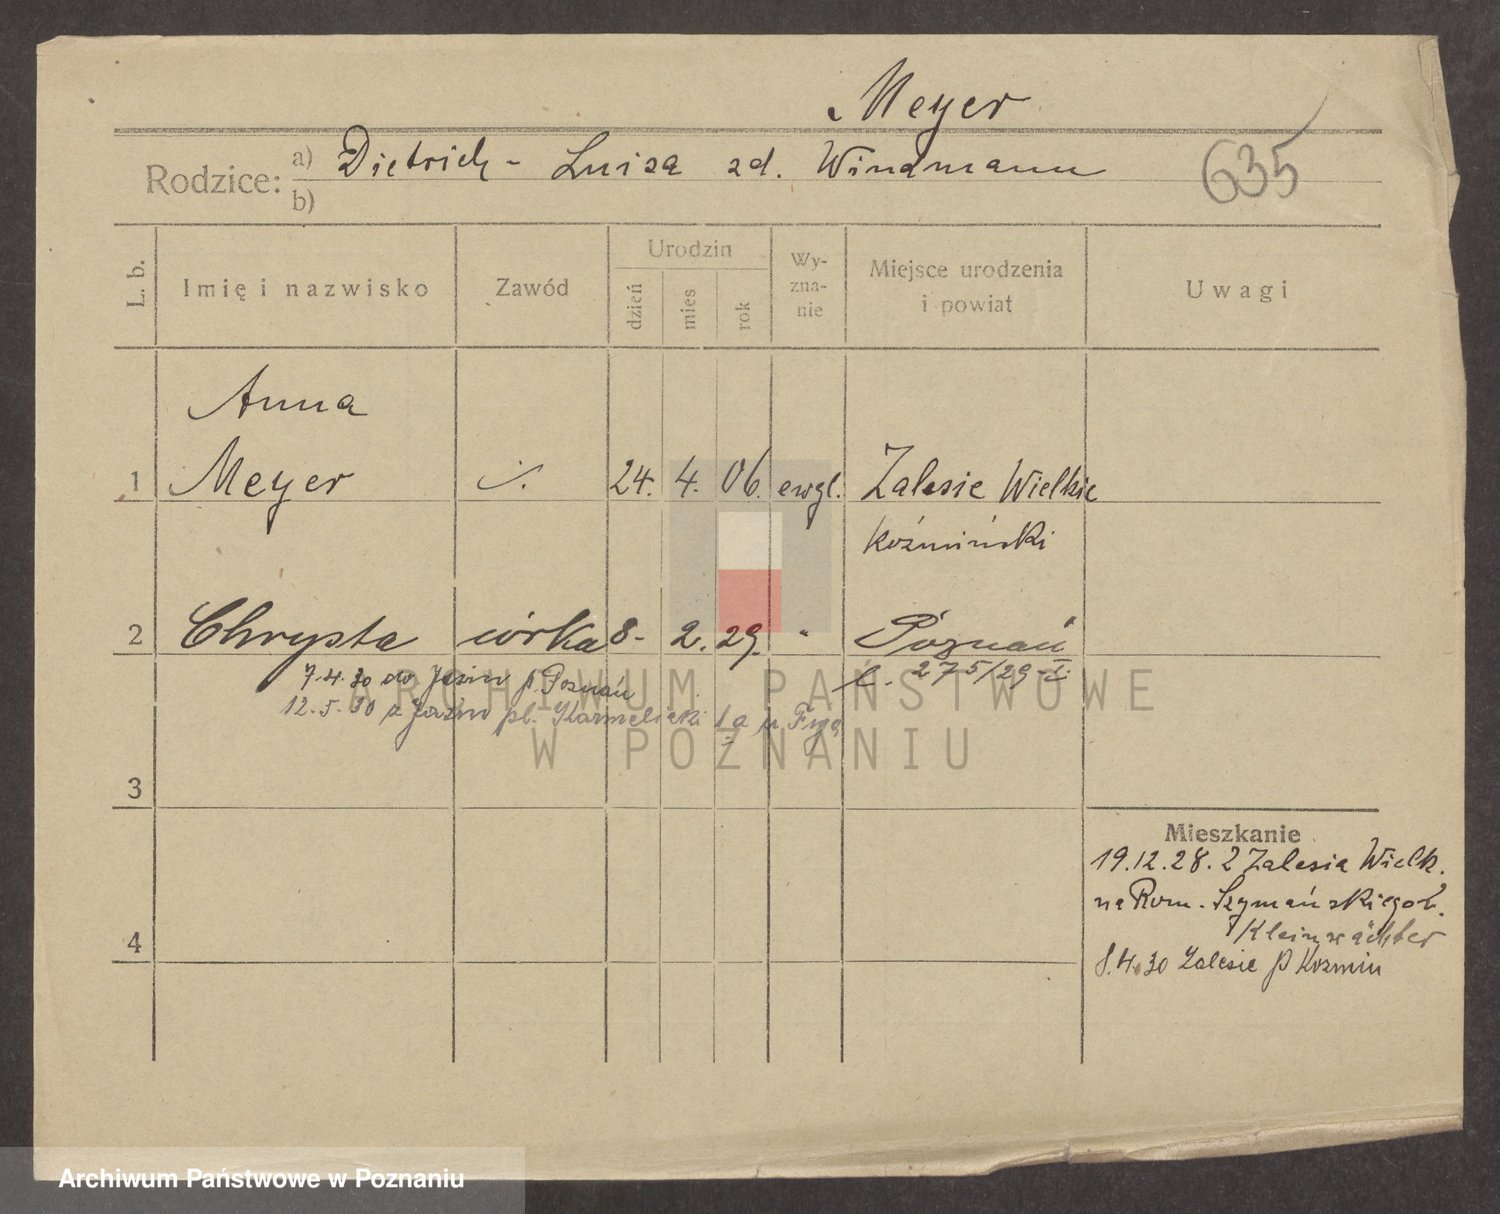 Meyer
Rodzice: a) Dietrich - Luisa zd. Windmann
635
b)
L. b.
Imię i nazwisko
Zawód
Urodzin
dzień
mies
rok
Wy-
zna-
nie
Miejsce urodzenia
i powiat
Uwagi
Anna
1 Meyer ./. 24. 4. 06. ewgl. Zalesie Wielkie
Koźmiński
2 Chrysta córka 8. 2. 29. " Poznań
l. 275/29-I.
7.4.30 do p. Poznań
12.5.30 z pl. Karmelicki 1a
ARCHIWUM PAŃSTWOWE
W POZNANIU
3
Mieszkanie
19.12.28. z Zalesia Wielk.
na Rom. Szymańskiego
Kleinwächter
8.4.30 Zalesie p Kozmin
4
Archiwum Państwowe w Poznaniu